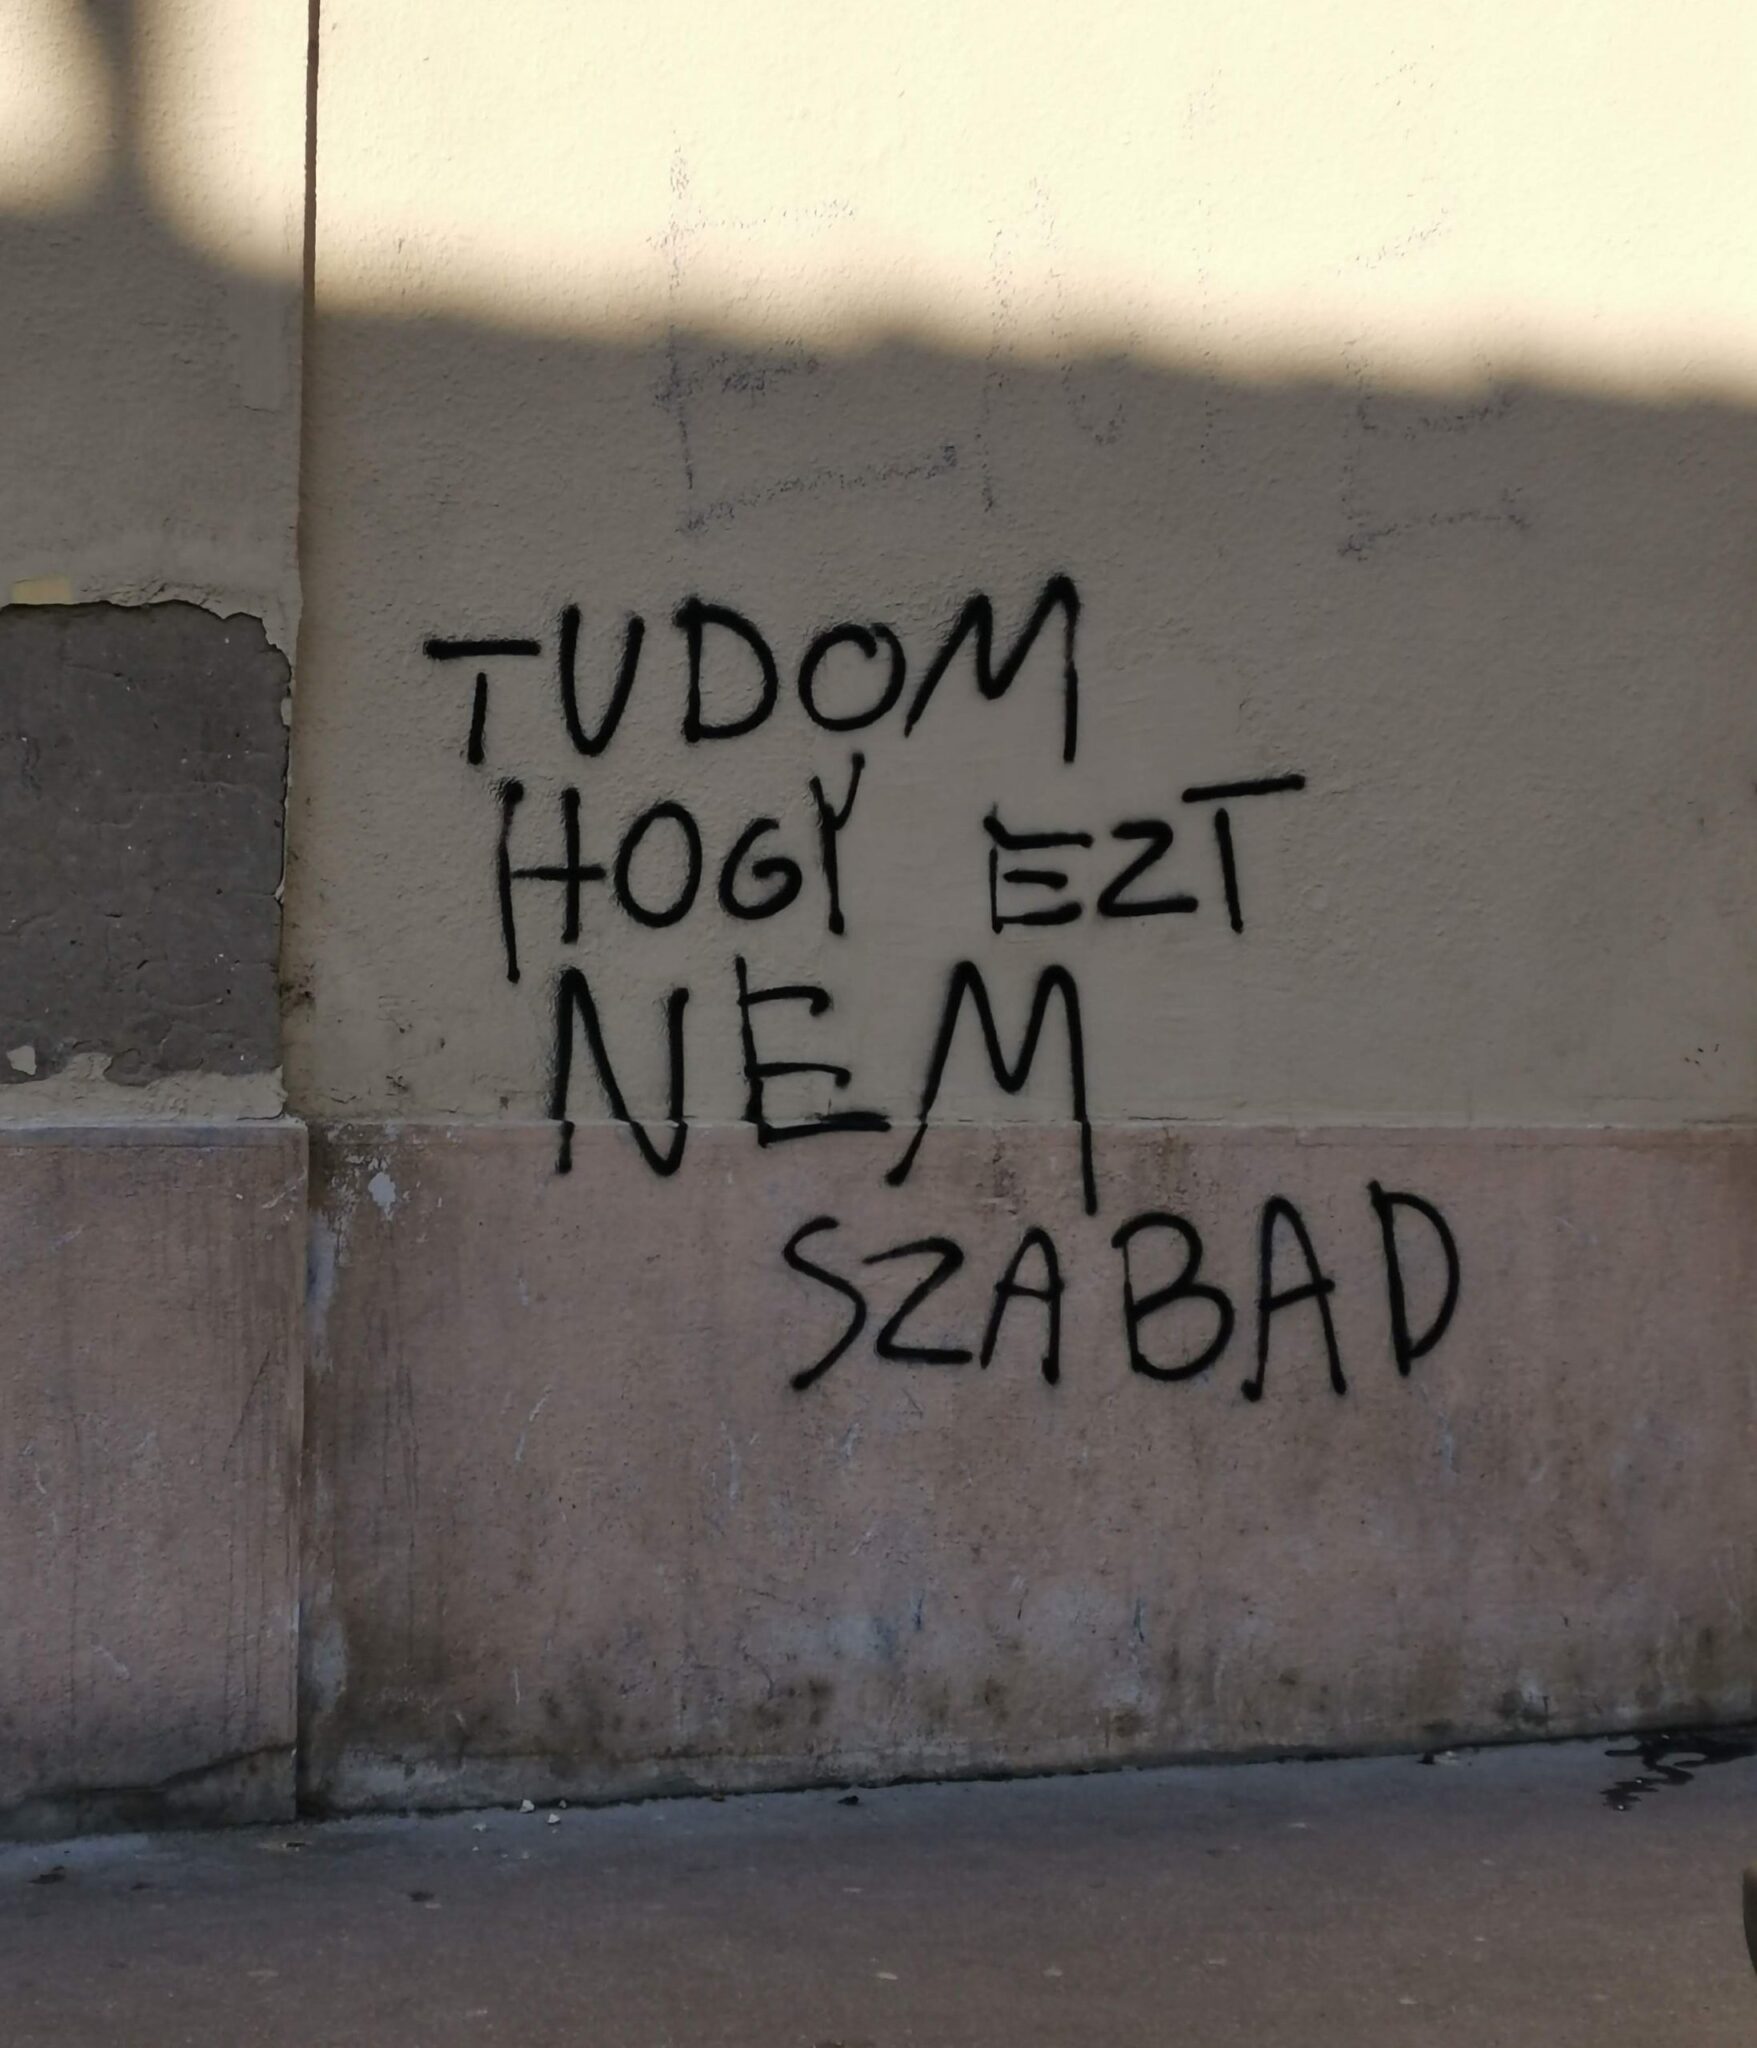 TUDOM
HOGY EZT
NEM
SZABAD